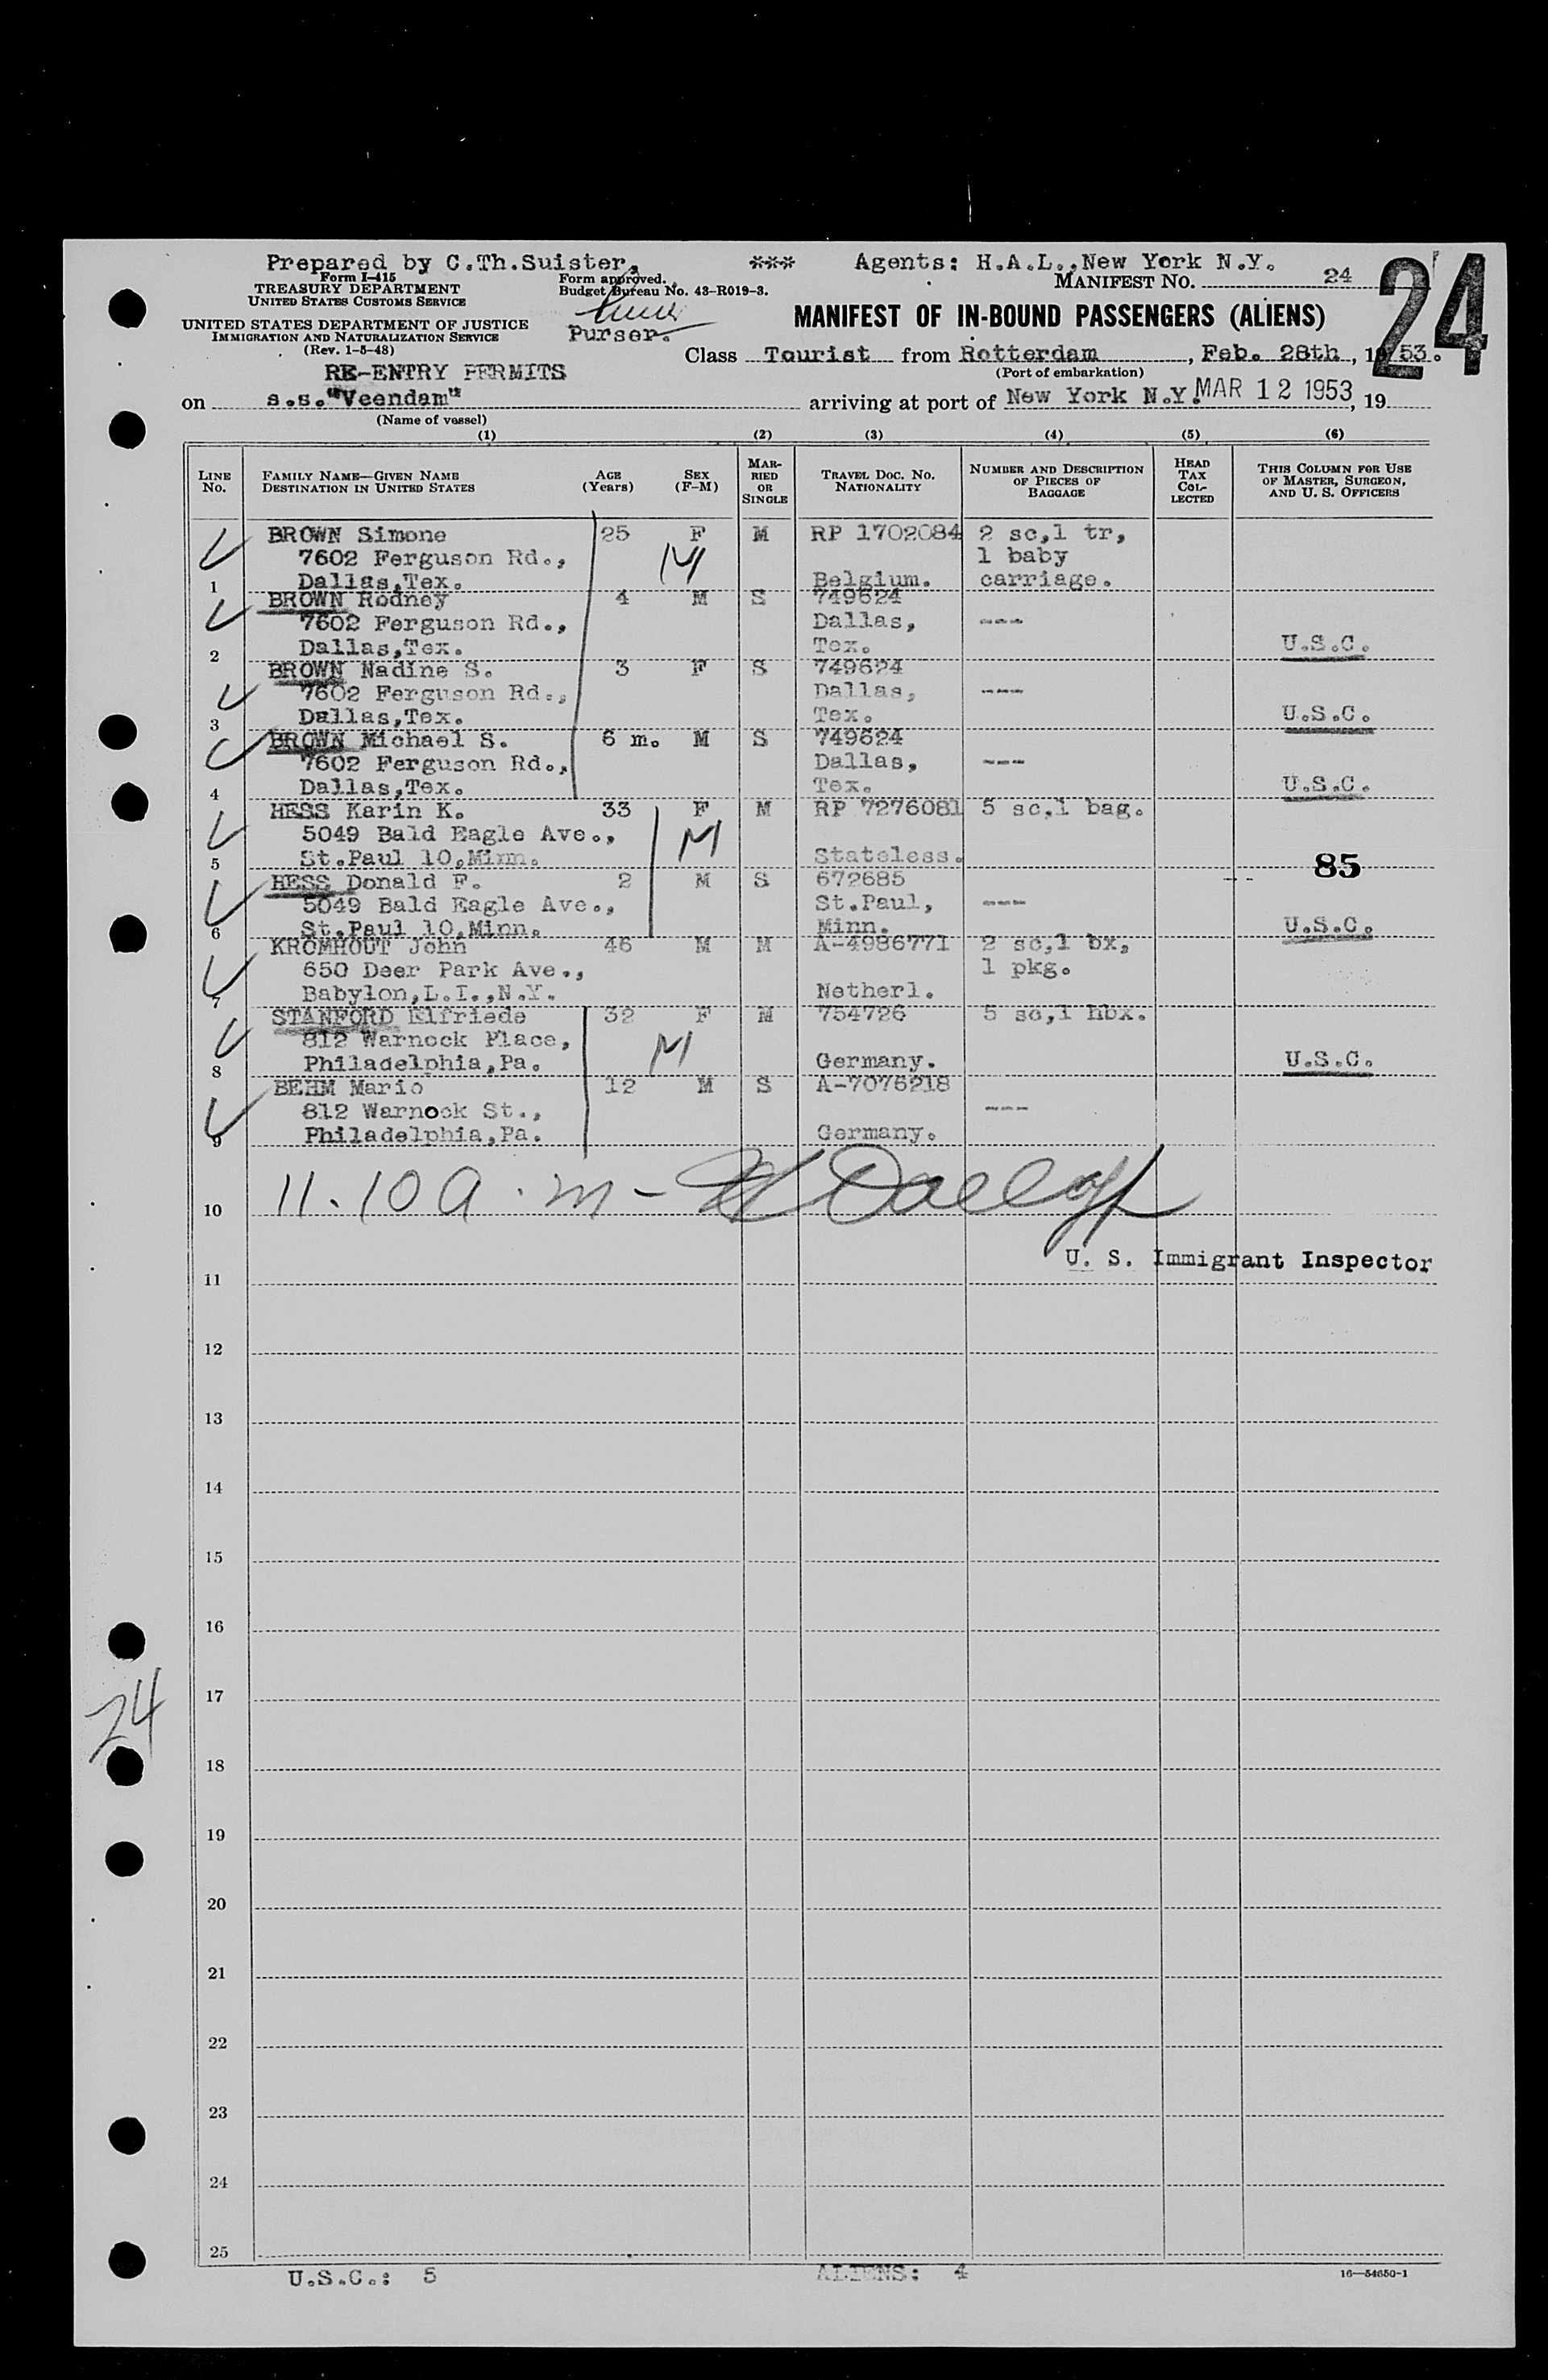 Prepared by C.Th.Suister, *** Agents: H.A.L..New York N.Y.
Form I-415
TREASURY DEPARTMENT
UNITED STATES CUSTOMS SERVICE
Form approved.
Budget Bureau No. 43-R019-3.
MANIFEST NO. 24
24
UNITED STATES DEPARTMENT OF JUSTICE
IMMIGRATION AND NATURALIZATION SERVICE
(Rev. 1-5-48)
Purser.
MANIFEST OF IN-BOUND PASSENGERS (ALIENS)
Class Tourist from Rotterdam, Feb. 28th, 1953.
(Port of embarkation)
RE-ENTRY PERMITS
on s.s."Veendam" arriving at port of New York N.Y. MAR 12 1953, 19
(Name of vessel)
(1) (2) (3) (4) (5) (6)
LINE NO.
FAMILY NAME—GIVEN NAME
DESTINATION IN UNITED STATES
AGE (Years)
SEX (F-M)
MAR-RIED OR SINGLE
TRAVEL DOC. NO.
NATIONALITY
NUMBER AND DESCRIPTION OF PIECES OF BAGGAGE
HEAD TAX COL-LECTED
THIS COLUMN FOR USE OF MASTER, SURGEON, AND U. S. OFFICERS
BROWN Simone 25 F M RP 1702084 2 sc,1 tr,
7602 Ferguson Rd., M 1 baby
1 Dallas,Tex. Belgium. carriage.
BROWN Rodney 4 M S 749624
7602 Ferguson Rd., Dallas, ---
2 Dallas,Tex. Tex. U.S.C.
BROWN Nadine S. 3 F S 749624
7602 Ferguson Rd., Dallas, ---
3 Dallas,Tex. Tex. U.S.C.
BROWN Michael S. 6 m. M S 749624
7602 Ferguson Rd., Dallas, ---
4 Dallas,Tex. Tex. U.S.C.
HESS Karin K. 33 F M RP 7276081 5 sc,1 bag.
5049 Bald Eagle Ave., M
5 St.Paul 10,Minn. Stateless. 85
HESS Donald F. 2 M S 672685
5049 Bald Eagle Ave., St.Paul, ---
6 St.Paul 10,Minn. Minn. U.S.C.
KROMHOUT John 46 M M A-4986771 2 sc,1 bx,
650 Deer Park Ave., 1 pkg.
7 Babylon,L.I.,N.Y. Netherl.
STANFORD Elfriede 32 F M 754726 5 sc,1 hbx.
812 Warnock Place, M
8 Philadelphia,Pa. Germany. U.S.C.
BEHM Mario 12 M S A-7076218
812 Warnock St., ---
9 Philadelphia,Pa. Germany.
10 11.10 a.m-
U. S. Immigrant Inspector
11
12
13
14
15
16
17
24
18
19
20
21
22
23
24
25
U.S.C.: 5 ALIENS: 4 16—54650-1